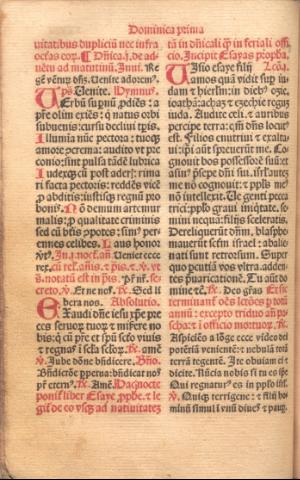 Dominica prima
uitatibus dupliciū nec infra
octas cor. ¶ Dñica j. de ad-
uētu ad matutinū. Inui. Re
gē ventur̄ dñz. Venite adorem⁹.
ps̄ Venite. Hymnus.
Verbū supnū ,pdiēs: a
pr̄e olim exiēs: q̄ natus orbi
subuenis: cursu decliui tp̄is.
Illumīa nūc pectora: tuoq̨
amore perema: audito vt pre
conio: sint pulsa tādē lubrica
Iudexq̨ cū post aderj: rima
ri facta pectoris: reddēs vicē
p̱ abditis: iustisq̨ regnū pro
bonis. Nō demum artemur
malis: p̱ qualitate criminis
sed cū bt̄is
cōpotes: sim⁹ per-
ennes celides. Laus honor
v̄t⁹.
rex.
creto.
bera nos. Absolutio.
Exaudi dn̄e iesu xp̄e pre
ces seruoꝝ tuoꝝ z miserē no
bis: q̄ cū pr̄e et spū scō viuis
z regnas ī secla scloꝝ. R̄. amē
v̄. Iube dōne bn̄dicere. Bn̄o.
Bn̄dictiōe ꝑpetua: bn̄dicat nos
pr̄ etern⁹. R̄. Amē. Hac nocte
ponif̃ liber Esaye ꝓphe. & le
gif̃ de eo vsq̨ ad natiuitatez
tā in dn̄icali q̄ in feriali offi
cio. Incipit Esayas propha.
Visio esaye filij Lc̄o.j.
amos quā vidit sup iu-
dam & hierlm: in dieb⁹ ozie,
ioathā: achaz & ezechie reguz
iuda. Audite celi, & auribus
percipe terra: q̄m dn̄s locut⁹
est. Filios enutriui & exalta-
ui: ipi aūt spreuerūt me. Co-
gnouit bos possessorē suū: et
asin⁹ ꝓsepe dn̄i sui. isrl̄ autez
me nō cognouit: et ppl̄s me⁹
nō intellexit. Ue genti pecca
trici: ppl̄o graui iniqtate, se-
mini nequā: filijs sceleratis.
Dereliquerūt dn̄m, blasphe
mauerūt scēm israel: abalie-
nati sunt retrorsum. Super
quo ꝑcutiā vos vltra, adden-
tes ꝓuaricationē. Tu aūt do
mine &c̄. Deo gr̄as
terminant̃ oēs lectōes ꝑ totū
annū: excepto triduo añ pa-
scha: & ī officio mortuoꝝ. R̄.
Aspiciēs a lōge ecce video dei
potētiā veniētē: & nebulā totā
terrā tegentē. Ite obuiam ei &
dicite. Nūcia nobis si tu es ip̄e.
Qui regnatur⁹ es in pplo isrl̄.
v̄. Quiq̨ terrigene: & filij ho
minū simul ī vnū diues & paup̱.